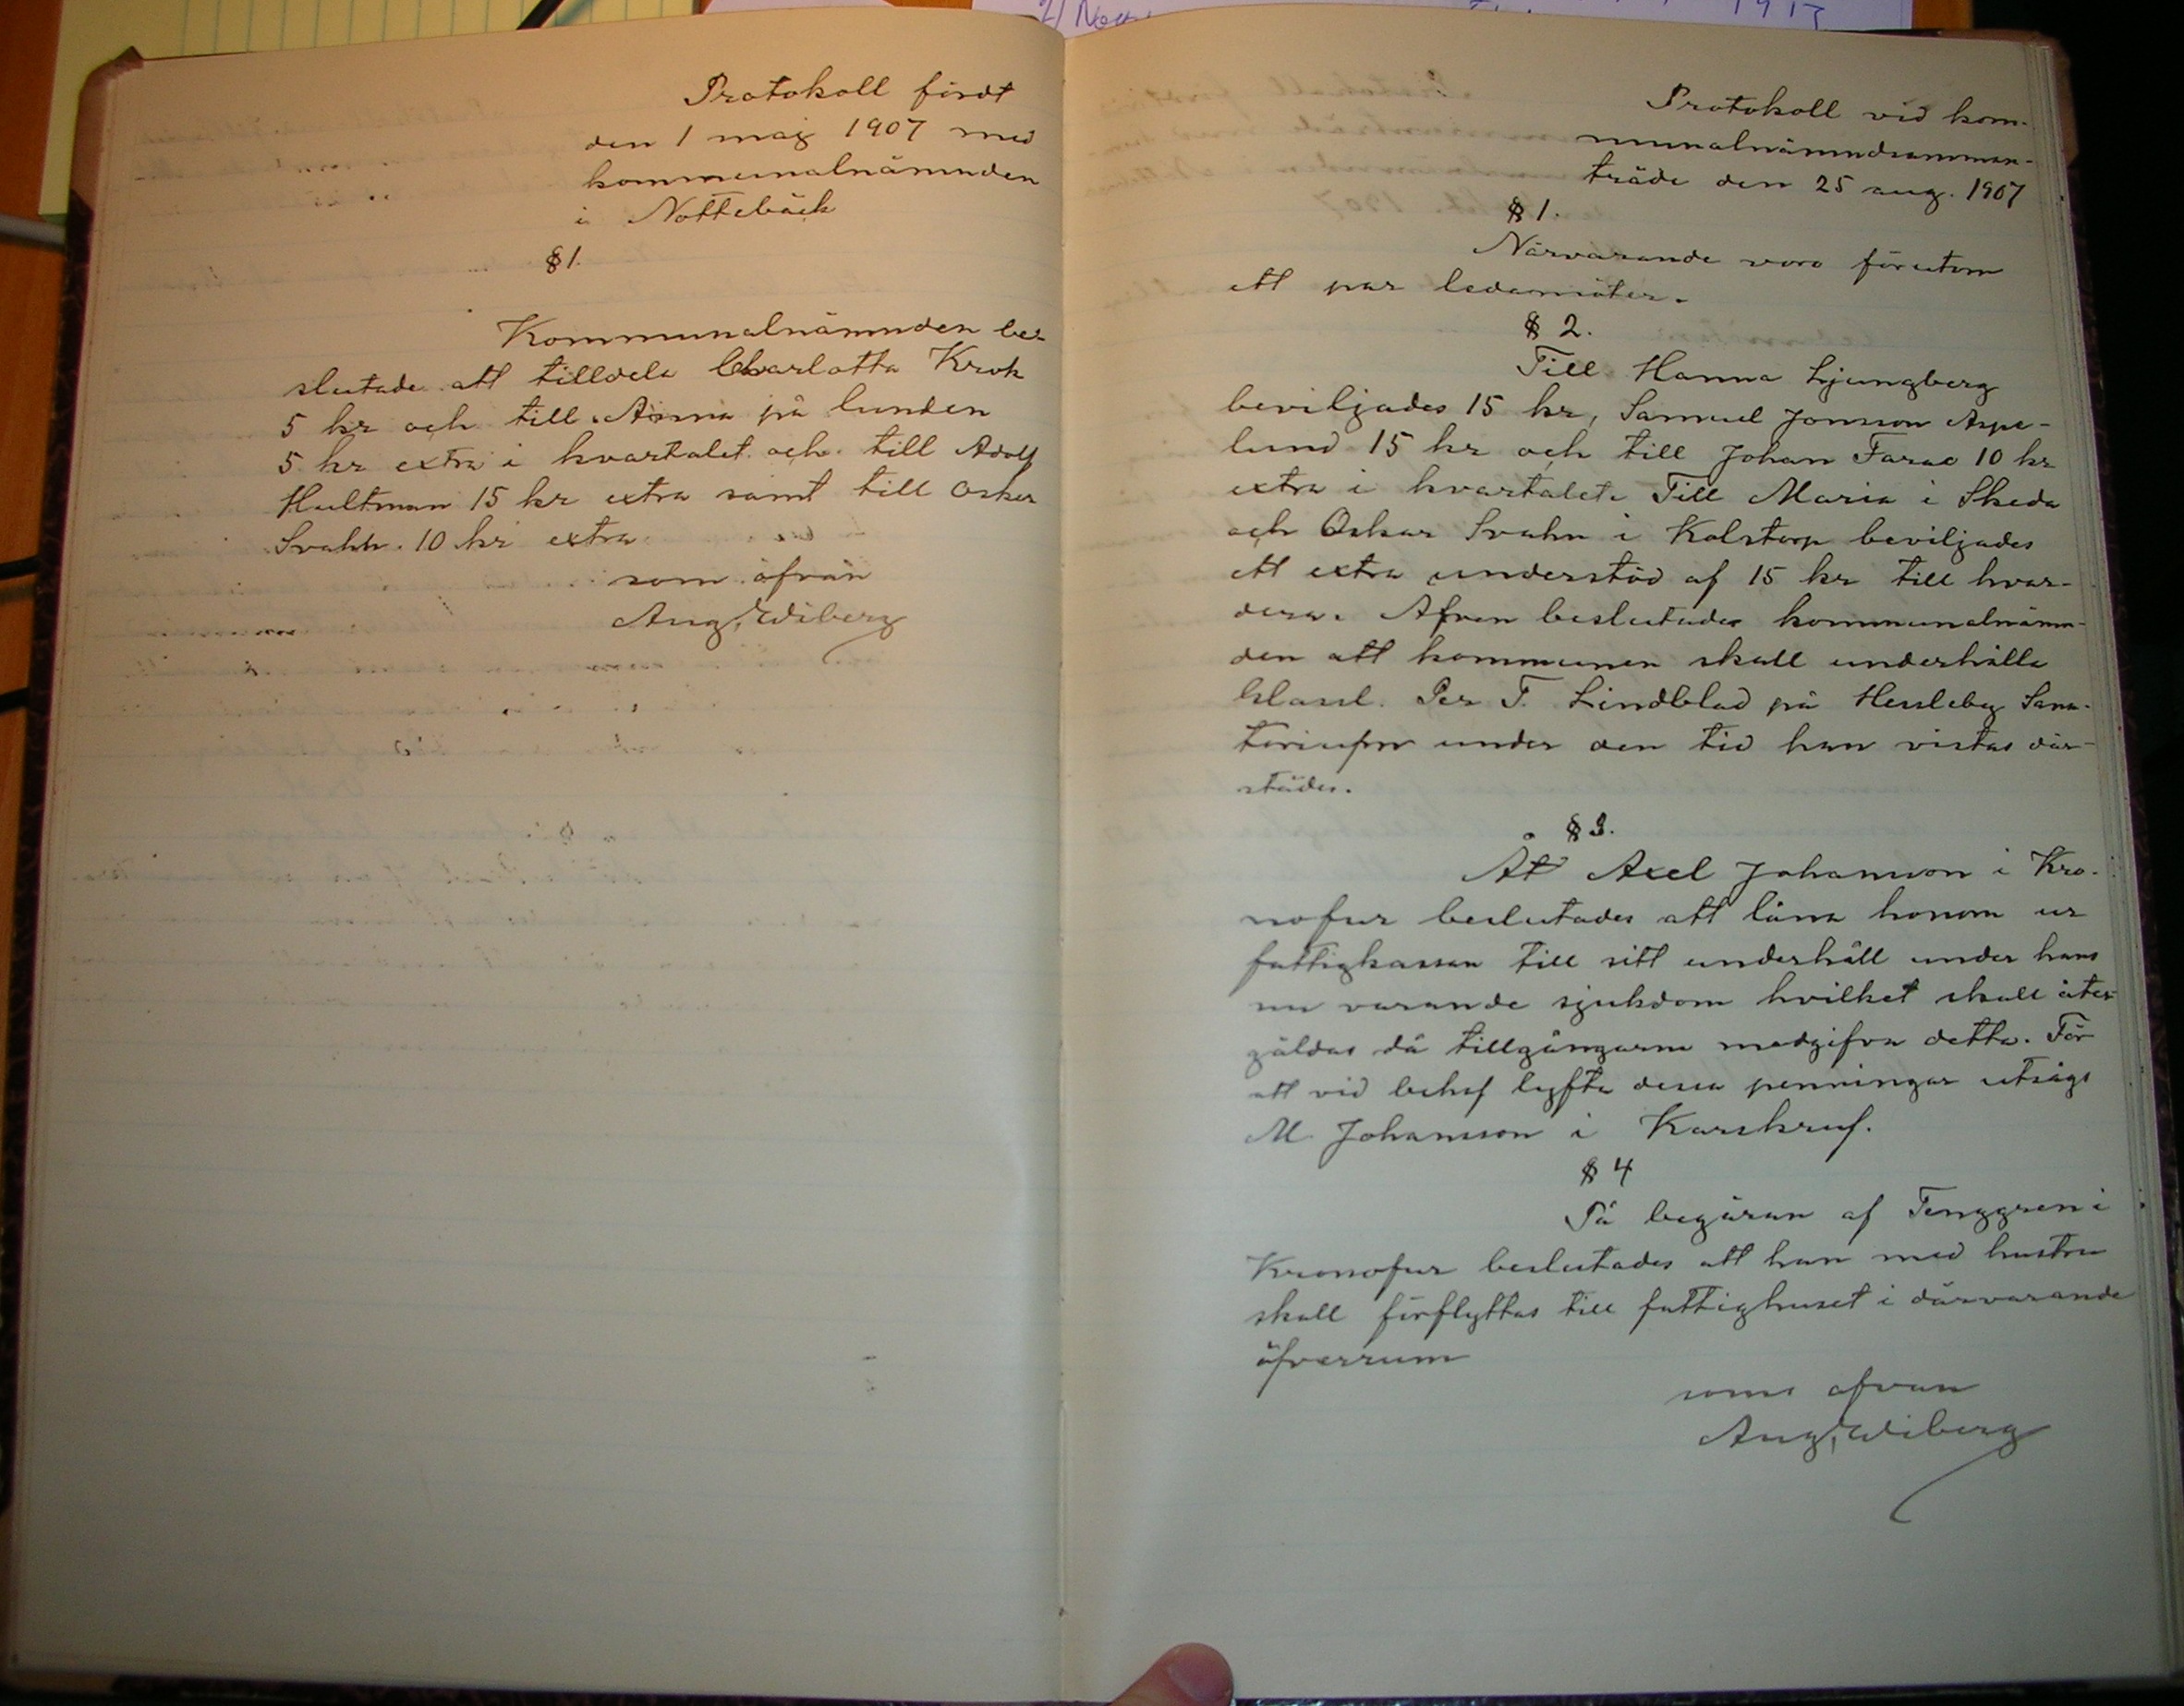 Protokoll fördt
den 1 maj 1907 med
kommunalnämnden
i Nottebäck
§ 1.
Kommunalnämnden be-
slutade att tilldela Charlotta Krok
5 kr och till Anna på lunden
5 kr extra i kvartalet och till Adolf
Hultman 15 kr extra samt till Oskar
Svahn 10 kr extra
som ofvan
Aug. Wiberg
Protokoll vid kom-
munalnämndsamman-
träde den 25 aug. 1907
§ 1.
Närvarande voro förutom
ett par ledamöter.
§ 2.
Till Hanna Ljungberg
beviljades 15 kr, Samuel Jonsson Aspe-
lund 15 kr och till Johan Farae 10 kr
extra i kvartalet. Till Maria i Skeda
och Oskar Svahn i Kolstorp beviljades
ett extra understöd af 15 kr till hvar-
dera. Äfven beslutades kommunalnämn-
den att kommunen skall underhålla
Per F. Lindblad på Hessleby Sana-
torium under den tid han vistas där-
städes.
§ 3.
Åt Axel Johansson i Kro-
nofur beslutades att låna honom ur
fattigkassan till sitt underhåll under hans
nu varande sjukdom hvilket skall åter-
gäldas då tillgångarna medgifva detta. För
att vid behof lyfta dessa penningar utsågs
M. Johansson i Karskruf.
§ 4
På begäran af Tenggren i
Kronofur beslutades att han med hustru
skall förflyttas till fattighuset i därvarande
öfverrum
som ofvan
Aug. Wiberg